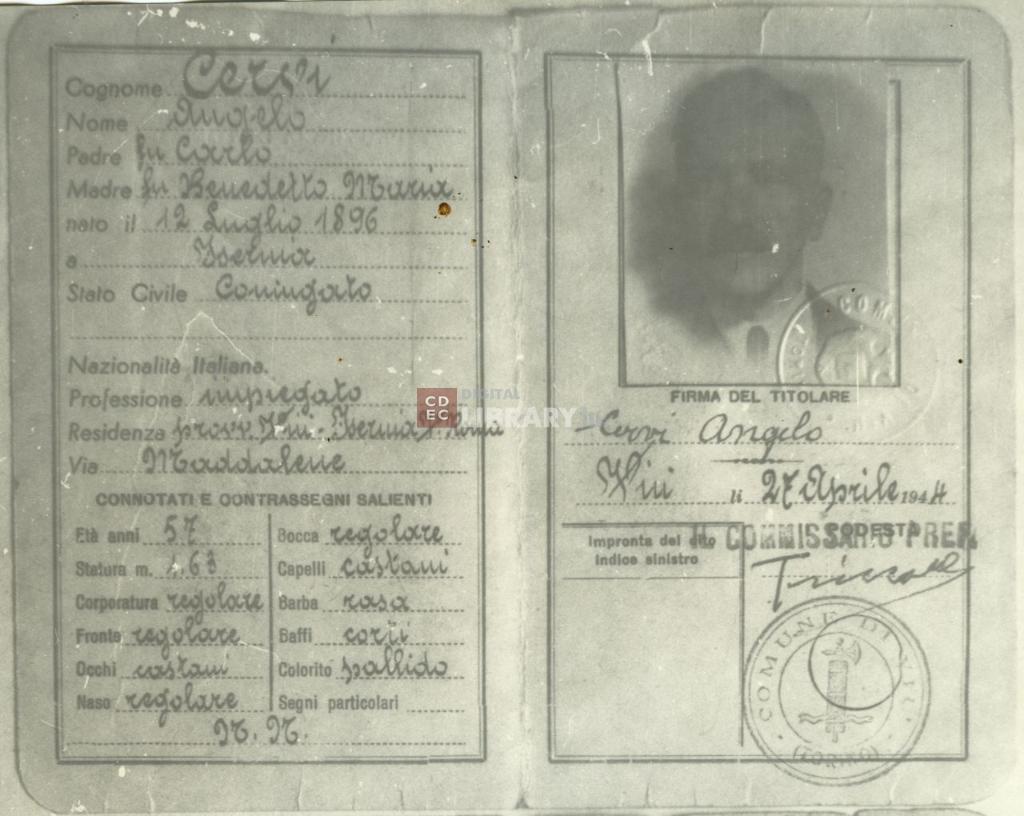 Cognome Cervi
Nome Angelo
Padre fu Carlo
Madre fu Benedetto Maria
nato il 12 Luglio 1896
a Isernia
Stato Civile Coniugato
Nazionalità Italiana.
Professione impiegato
Residenza provv. Viù - Isernia
Via Maddalene
CONNOTATI E CONTRASSEGNI SALIENTI
Età anni 57
Statura m. 1,63
Corporatura regolare
Fronte regolare
Occhi castani
Naso regolare
Bocca regolare
Capelli castani
Barba rasa
Baffi
Colorito pallido
Segni particolari
N. N.
CDEC DIGITAL LIBRARY
FIRMA DEL TITOLARE
Cervi Angelo
Viù li 27 Aprile 1944
Impronta del dito
indice sinistro
IL PODESTÀ
COMMISSARIO PREF.
COMUNE DI VIÙ
(TORINO)